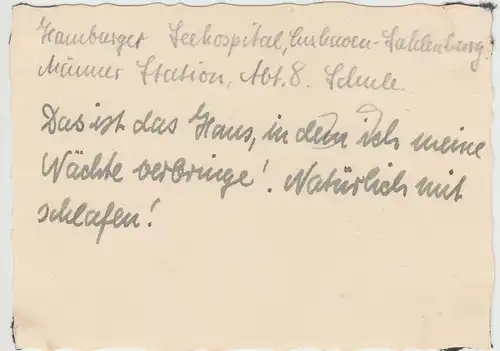 Hamburger Seehospital, Cuxhaven-Sahlenburg.
Männer Station, Abt. 8. Schule.
Das ist das Haus, in dem ich meine
Nächte verbringe! Natürlich mit
schlafen!